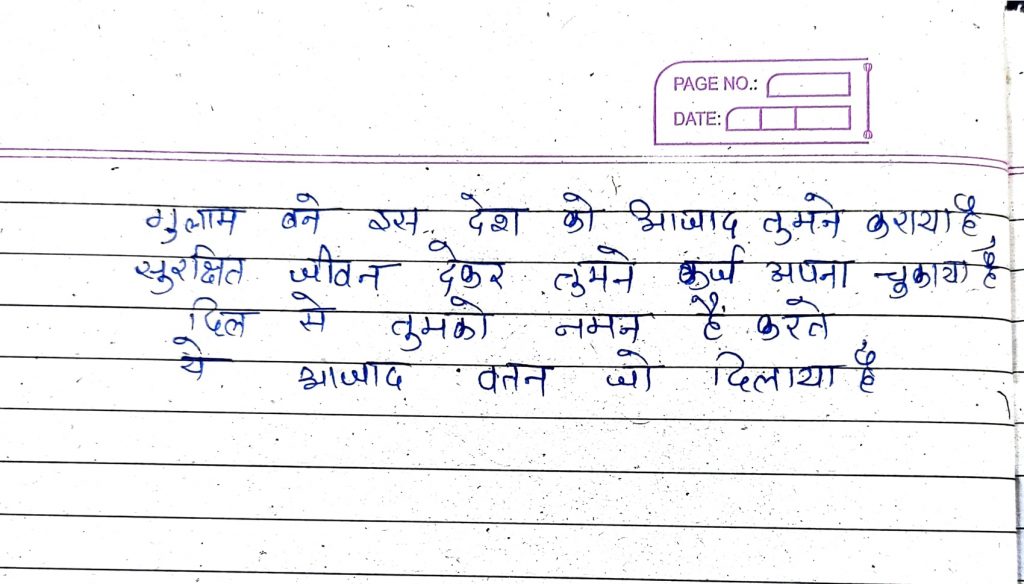 PAGE NO.:
DATE:
गुलाम बने इस देश को आजाद तुमने कराया है
सुरक्षित जीवन देकर तुमने कर्ज अपना चुकाया है
दिल से तुमको नमन हैं करते
ये आजाद वतन जो दिलाया है